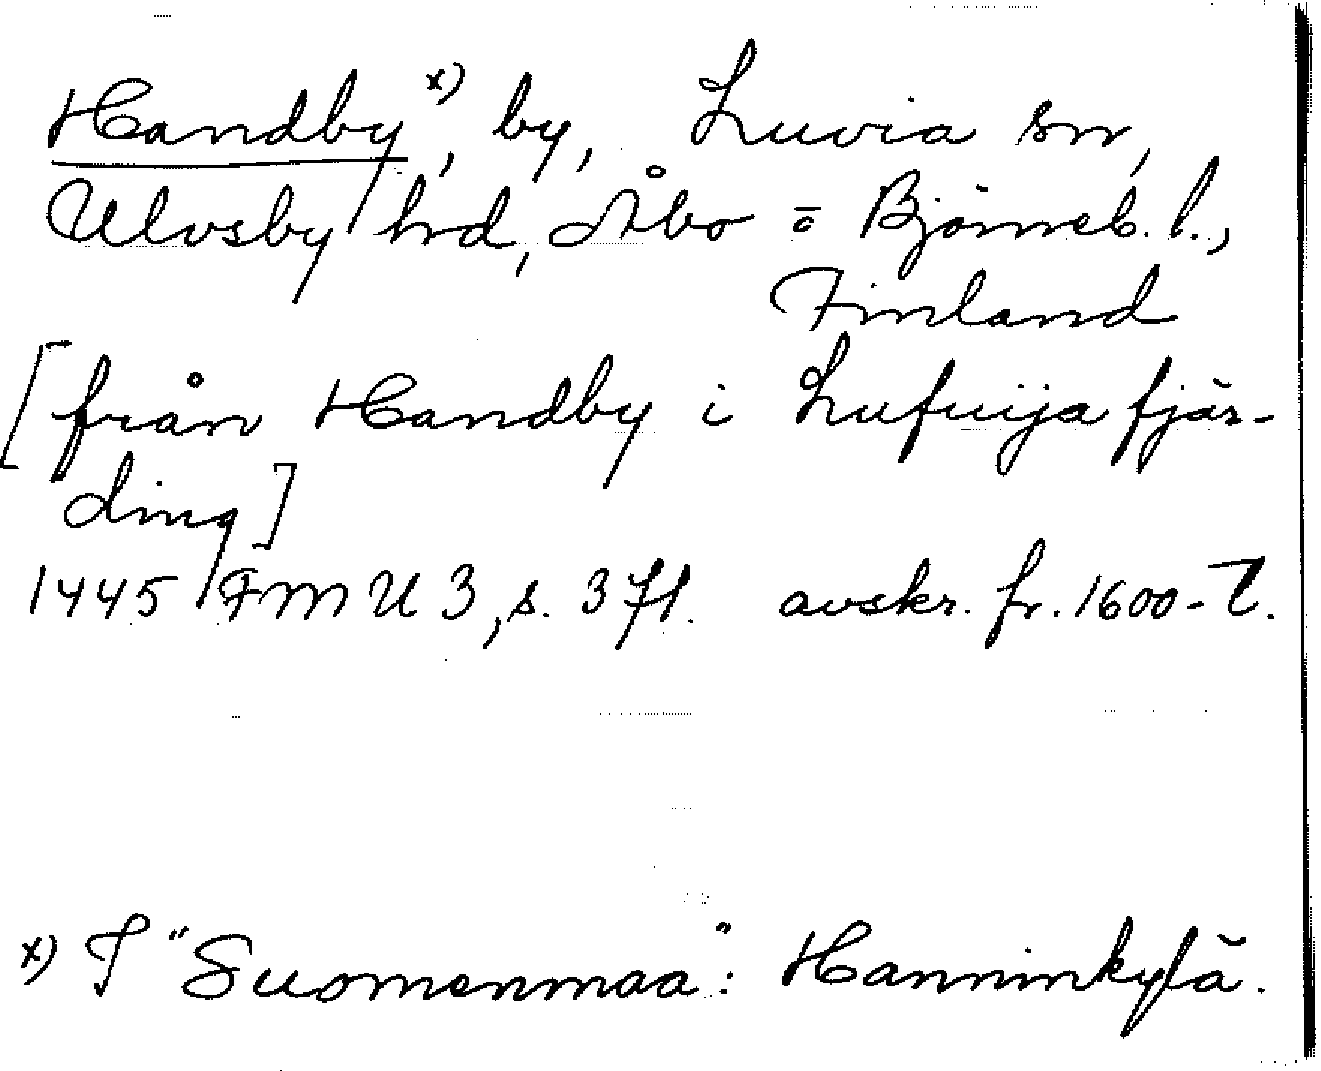 Handby x), by, Luvia sn,
Ulvsby hd, Åbo o Björneb. l.,
Finland
[från Handby i Lufuija fjär-
ding]
1445 FMU 3, s. 371. avskr. fr. 1600-t.
x) I "Suomenmaa": Hanninkylä.